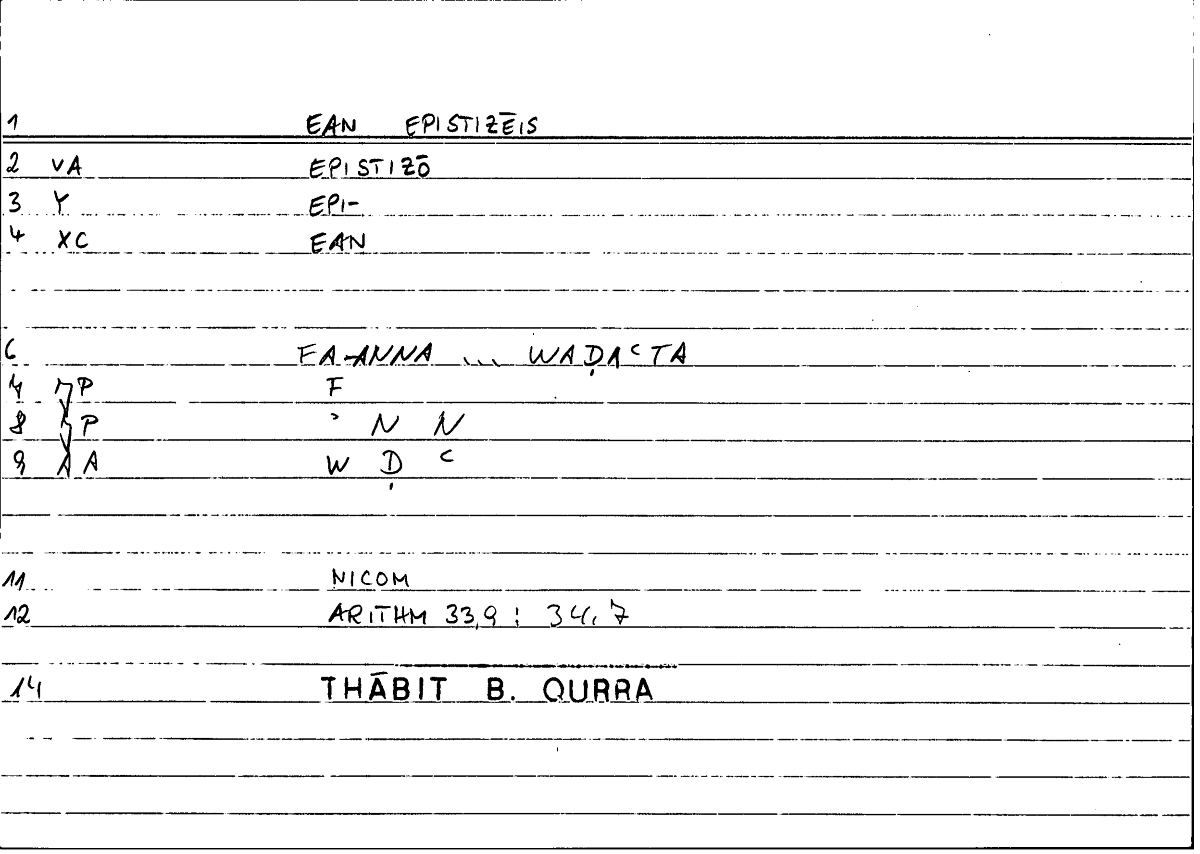 1 EAN EPISTIZĒIS
2 VA EPISTIZŌ
3 Y EPI-
4 XC EAN
6 FA-ANNA ... WAḌAʿTA
7 P F
8 P ʾ N N
9 A W Ḍ ʿ
11 NICOM
12 ARITHM 33,9 : 34,7
14 THĀBIT B. QURRA